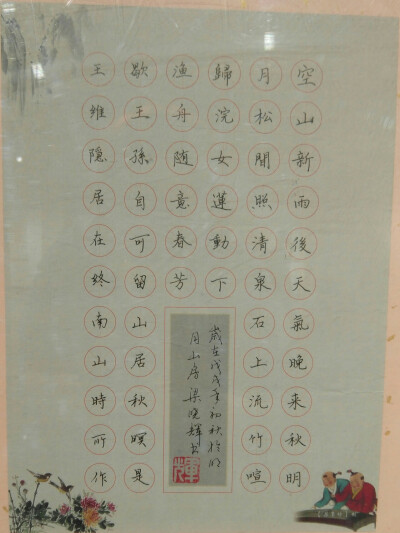 空山新雨後天氣晚来秋明
月松間照清泉石上流竹喧
歸浣女蓮動下
渔舟随意春芳
歇王孫自可留山居秋暝是
王維隱居在終南山時所作
歲在戊戌年初秋於明
月山房梁曉輝书